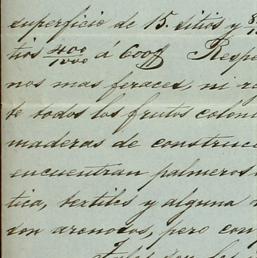 superficie de 15. sitios y
tios 400/1000 á 600$ Respe
nos mas feraces, ni r
te todos los frutos coloni
maderas de construcc
encuentran palmeros
tica, textiles y alguna
son arenosos, pero con